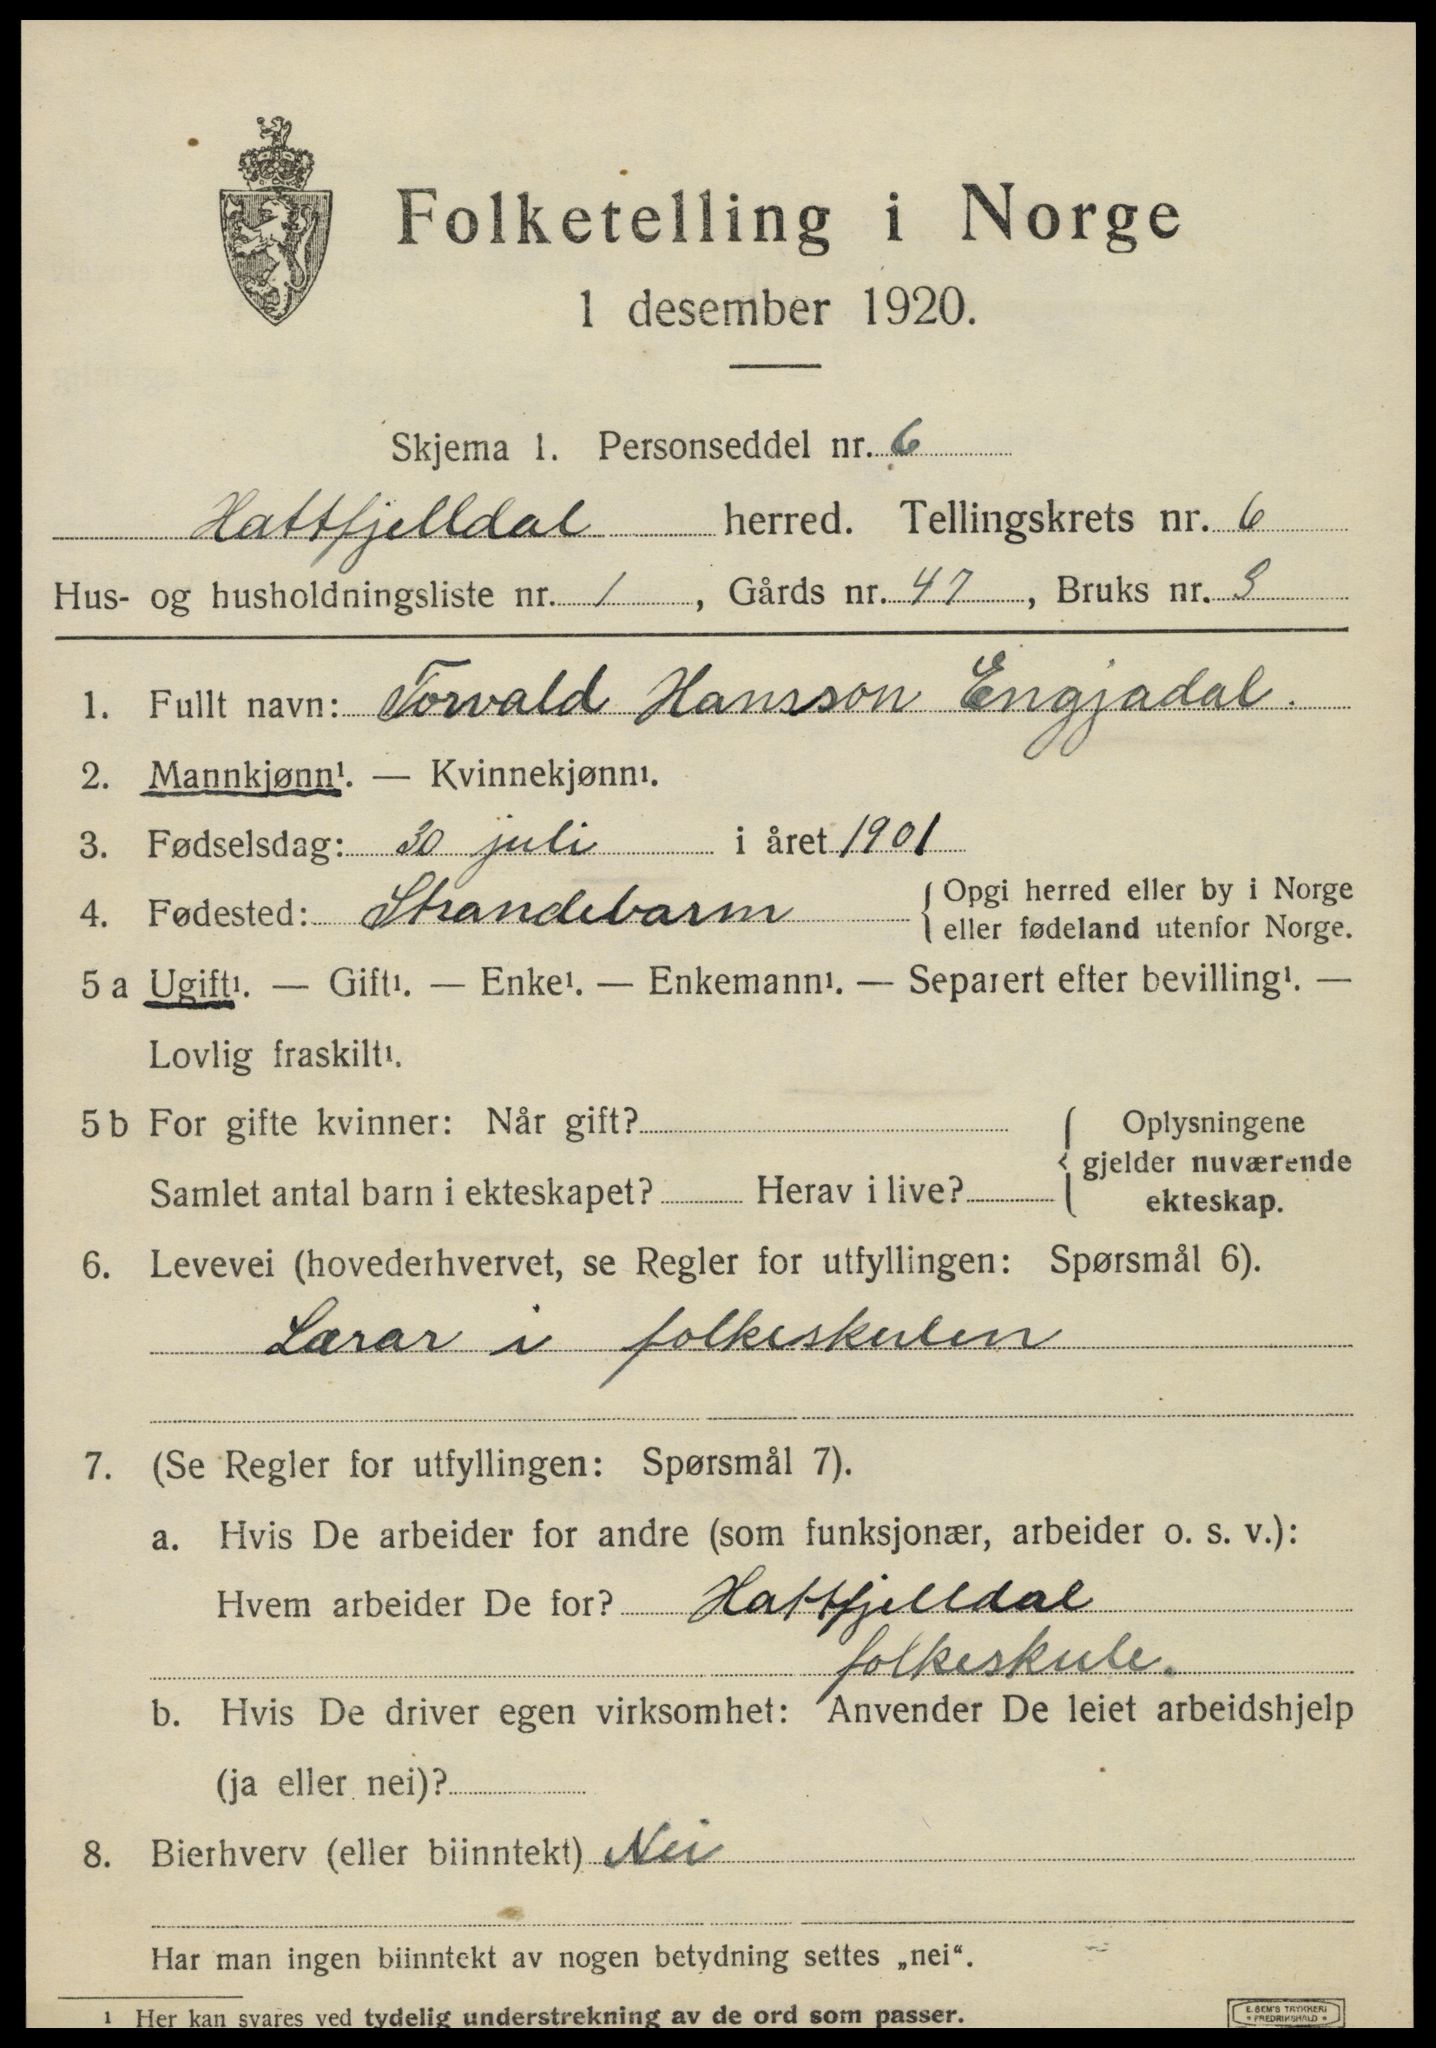 Folketelling i Norge
1 desember 1920.
Skjema 1. Personseddel nr. 6
Hattfjelldal herred. Tellingskrets nr. 6
Hus- og husholdningsliste nr. 1, Gårds nr. 47, Bruks nr. 3
1. Fullt navn: Torvald Hansson Engjadal.
2. Mannkjønn¹. — Kvinnekjønn¹.
3. Fødselsdag: 30 juli i året 1901
4. Fødested: Strandebarm { Opgi herred eller by i Norge
eller fødeland utenfor Norge.
5 a Ugift¹. — Gift¹. — Enke¹. — Enkemann¹. — Separert efter bevilling¹. —
Lovlig fraskilt¹.
5 b For gifte kvinner: Når gift? { Oplysningene
gjelder nuværende
Samlet antal barn i ekteskapet? Herav i live? ekteskap.
6. Levevei (hovederhvervet, se Regler for utfyllingen: Spørsmål 6).
Lærar i folkeskulen
7. (Se Regler for utfyllingen: Spørsmål 7).
a. Hvis De arbeider for andre (som funksjonær, arbeider o. s. v.):
Hvem arbeider De for? Hattfjelldal
folkeskule.
b. Hvis De driver egen virksomhet: Anvender De leiet arbeidshjelp
(ja eller nei)?
8. Bierhverv (eller biinntekt) Nei
Har man ingen biinntekt av nogen betydning settes „nei“.
¹ Her kan svares ved tydelig understrekning av de ord som passer.
E. SEM'S TRYKKERI
• FREDRIKSHALD •